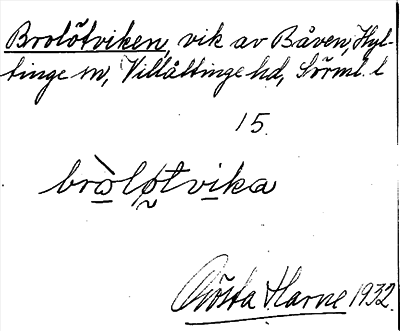 Brolötviken, vik av Båven, Hyl-
tinge sn, Villåttinge hd, Sörml. l
15.
bròlǫtvika
Gösta Harne 1932.